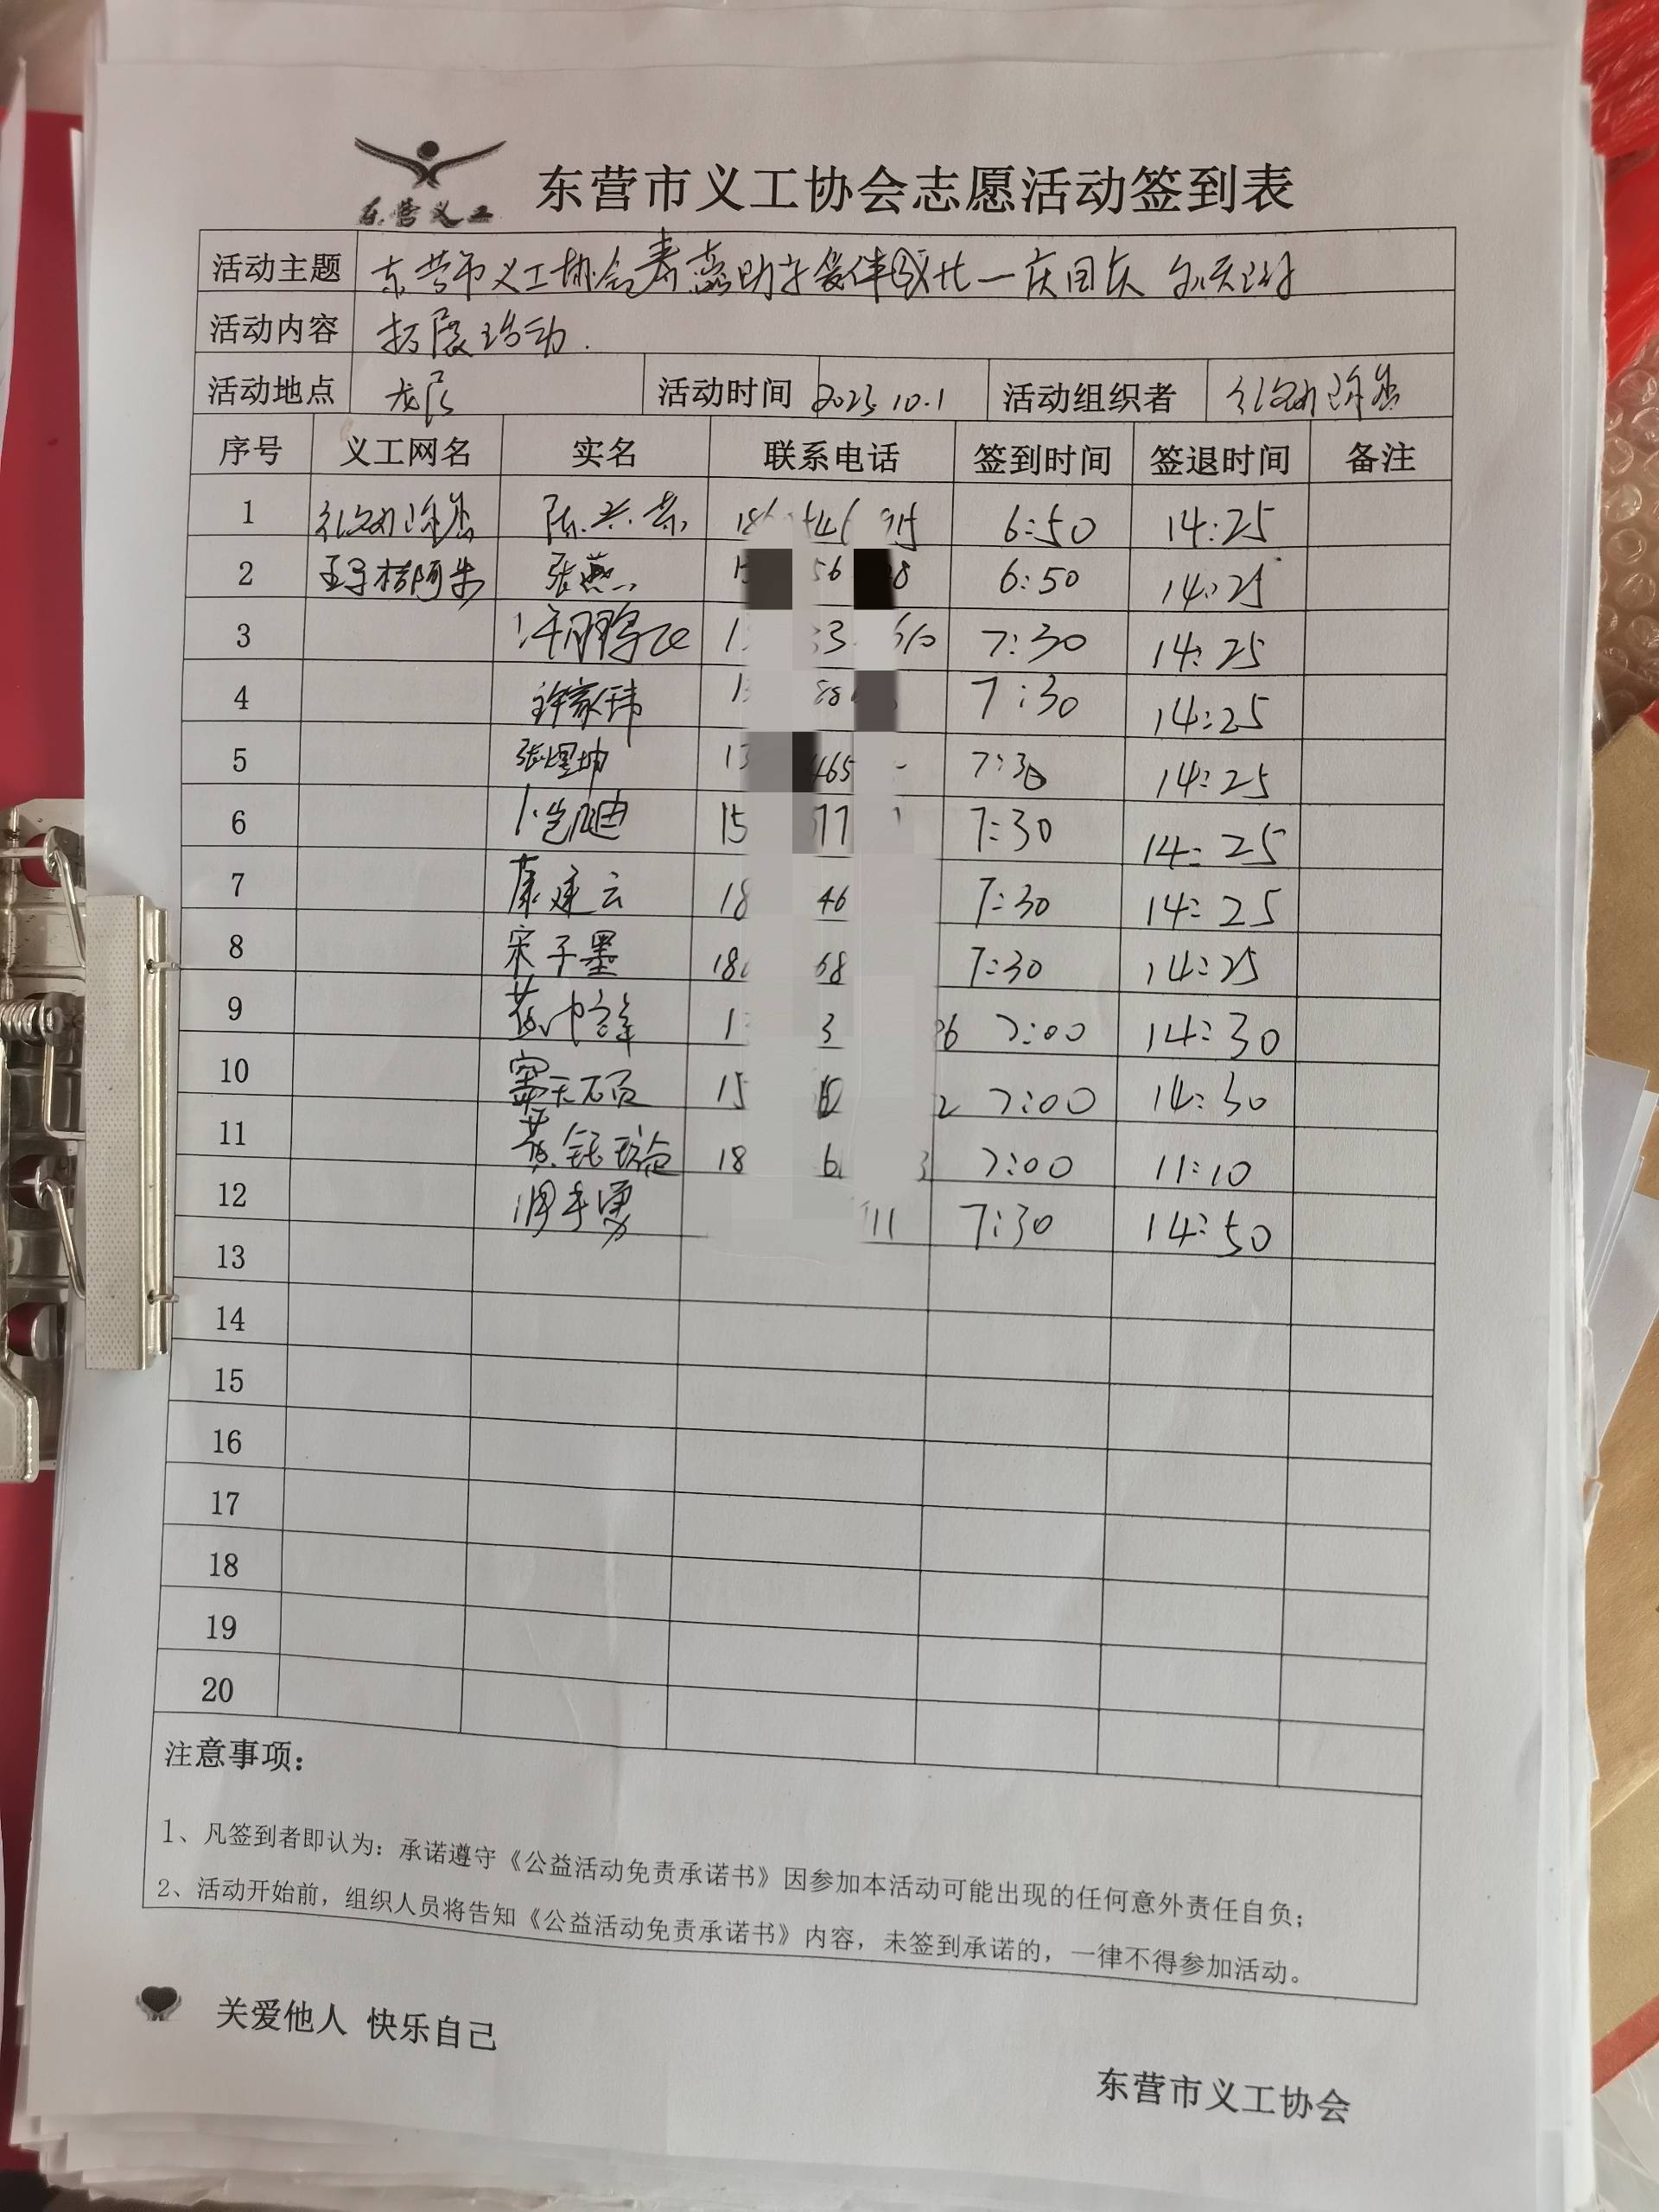 东营义工
东营市义工协会志愿活动签到表
活动主题 东营市义工协会春蕊助学爱伴成长一庆国庆
活动内容 拓展活动.
活动地点 龙居 活动时间 2023.10.1 活动组织者
序号 义工网名 实名 联系电话 签到时间 签退时间 备注
1 陈兴芬 6:50 14:25
2 张燕 6:50 14:25
3 7:30 14:25
4 许家玮 7:30 14:25
5 张煜坤 13 465 7:30 14:25
6 卜岂迪 15 77 7:30 14:25
7 康建云 18 46 7:30 14:25
8 宋子墨 18 68 7:30 14:25
9 1 3 7:00 14:30
10 窦天硕 15 2 7:00 14:30
11 黄钰璇 18 6 3 7:00 11:10
12 11 7:30 14:50
13
14
15
16
17
18
19
20
注意事项：
1、凡签到者即认为：承诺遵守《公益活动免责承诺书》因参加本活动可能出现的任何意外责任自负；
2、活动开始前，组织人员将告知《公益活动免责承诺书》内容，未签到承诺的，一律不得参加活动。
关爱他人 快乐自己
东营市义工协会